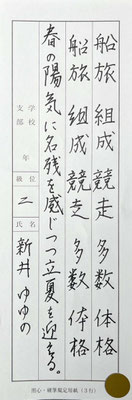 船旅 組成 競走 多数 体格
船旅 組成 競走 多数 体格
春の陽気に名残を感じつつ立夏を迎える。
学校
支部
年
級位 二
氏名 新井ゆゆの
耐心・硬筆規定用紙(3行)